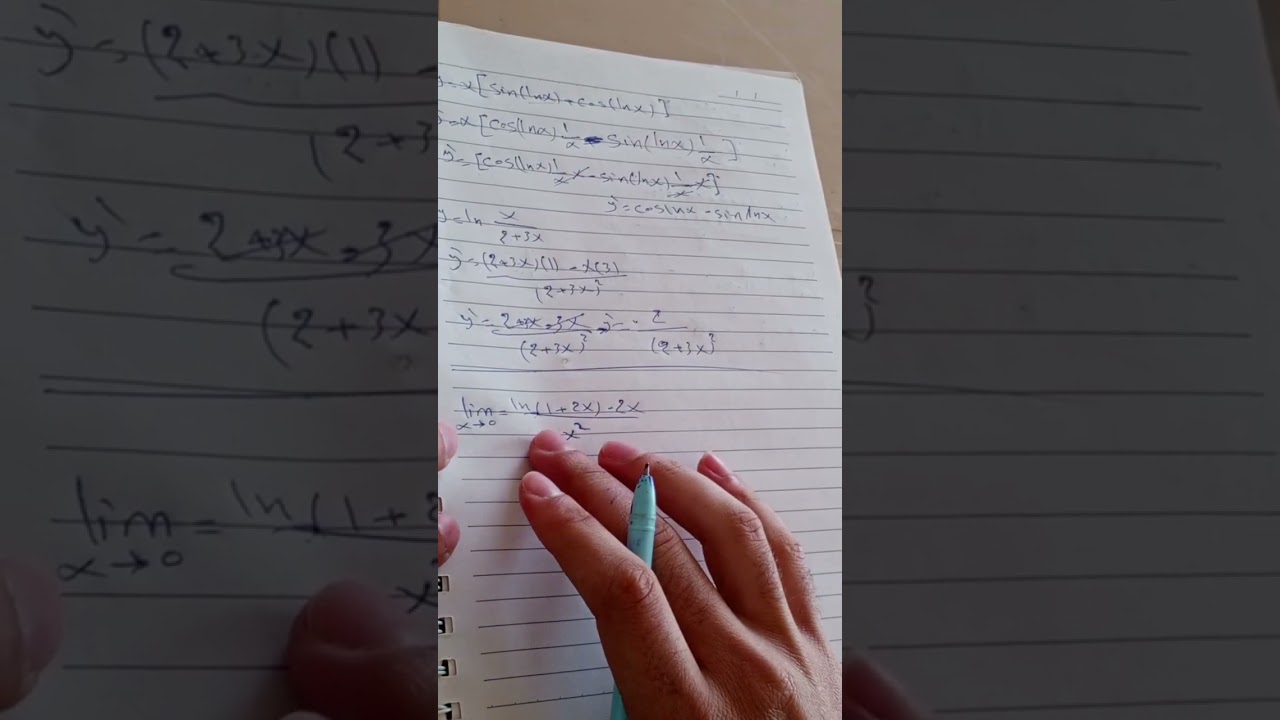 y=x[sin(lnx)+cos(lnx)]
y'=x[cos(lnx)1/x - sin(lnx)1/x]
y'=[cos(lnx)1/x x - sin(lnx)1/x x]
y'=coslnx - sinlnx
y=ln x/(2+3x)
y'=((2+3x)(1) - x(3))/(2+3x)²
y'=(2+3x-3x)/(2+3x)² y'= 2/(2+3x)²
lim x→0 = (ln(1+2x)-2x)/x²